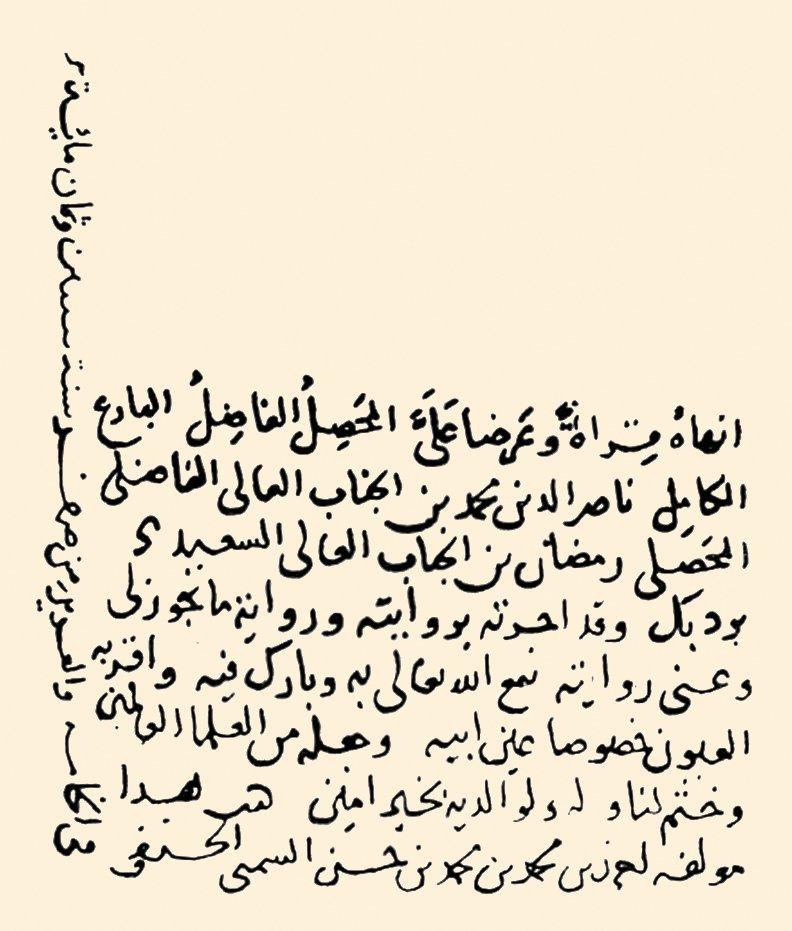 انهاه قراةً وعَرضا عَلَيَّ المحَصِلُ الفاضِلُ البارع
الكامِل ناصر الدين محمد بن الجناب العالى الفاضلى
المحَصِلى رمضان بن الجناب العالى السعيدى
بردبك وقد اجزته بروايته ورواية ما يجوز لى
وعنى روايته نفع الله تعالى به وبارك فيه واقر به
العيون خصوصا عين ابيه وجعله من العلما العاملين
وختم لنا وله ولوالديه بخير امين كتب هذا
مولفه محمد بن محمد بن حسن السمنى الحنفى
فى الثا والعشرين من صفر سنة ستين وثمان مائة